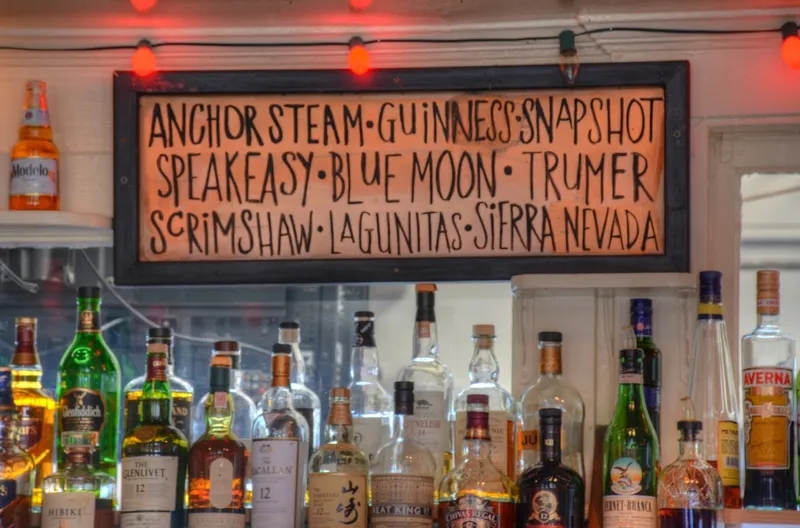 ANCHOR STEAM • GUINNESS • SNAPSHOT
SPEAKEASY • BLUE MOON • TRUMER
SCRIMSHAW • LAGUNITAS • SIERRA NEVADA
Modelo
Glenfiddich
AVERNA
THE
GLENLIVET
12
MACALLAN
12
12
山崎
HIBIKI
CHIVAS REGAL
JU
FERNET-BRANCA